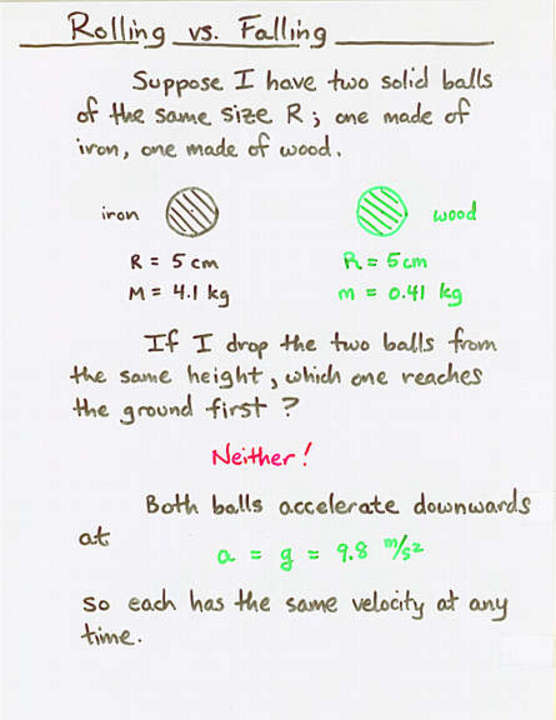 Rolling vs. Falling
Suppose I have two solid balls
of the same size R; one made of
iron, one made of wood.
iron
wood
R = 5 cm
R = 5 cm
M = 4.1 kg
m = 0.41 kg
If I drop the two balls from
the same height, which one reaches
the ground first ?
Neither!
Both balls accelerate downwards
at
a = g = 9.8 m/s2
so each has the same velocity at any
time.